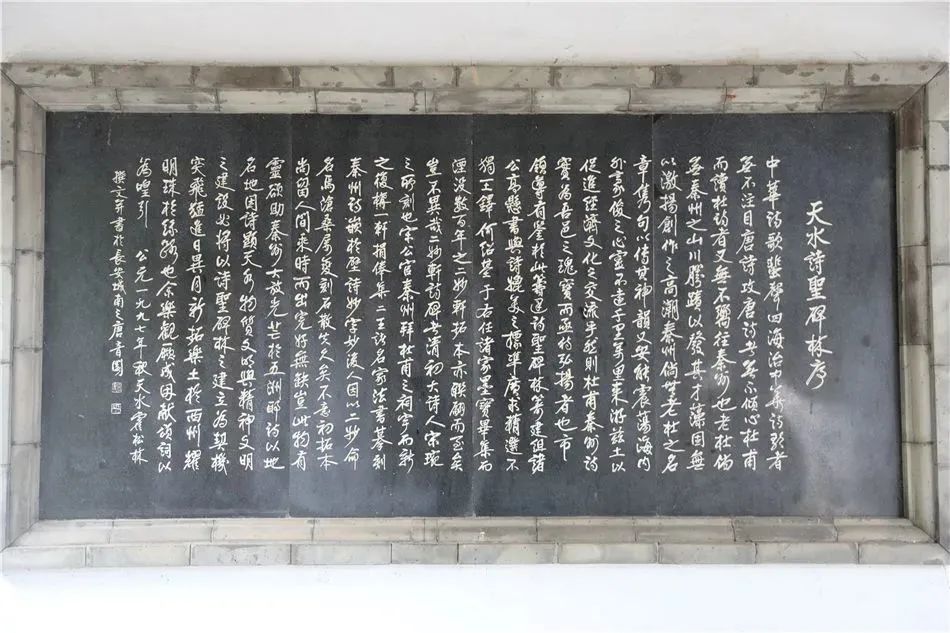 天水詩聖碑林序
中華詩歌蜚聲四海治中華詩歌者
無不注目唐詩攻唐詩者無不傾心杜甫
而讀杜詩者又無不嚮往秦州也老杜倘
無秦州之山川勝蹟以發其才藻固無
以激揚創作之高潮秦州倘無老杜之名
章雋句以傳其神韻又安能震蕩海內
外一家後之心靈不遠千里萬里來游茲土以
促進經濟文化之交流乎然則杜甫秦州詩
實為吾邑之魂寶而亟待弘揚者也市
領導有鑒於此籌建詩聖碑林籌建組諸
公高懸書與詩雙美之標準廣求精選不
獨王鐸何紹基于右任諸家墨寶畢集而
湮沒數百年之二妙軒拓本亦聯翩而至矣
豈不異哉二妙軒詩碑者清初大詩人宋琬
之所刻也宋公官秦州拜杜甫之祠宇而新
之復構一軒捐俸集二王諸名家法書摹刻
秦州詩嵌於壁詩妙字妙後人因以二妙命
名焉滄桑屢變刻石散失久矣不意初拓本
尚留人間來時而出完好無缺豈此物有
靈碩助秦州大放光芒於五洲耶詩以地
名地因詩顯天水物質文明與精神文明
之建設必將以詩聖碑林之建立為契機
突飛猛進日異月新拓樂土於西州耀
明珠於絲路也余樂觀厥成因獻頌詞以
為喤引　公元一九九七年秋天水霍松林
撰文并書於長安城南之唐音閣